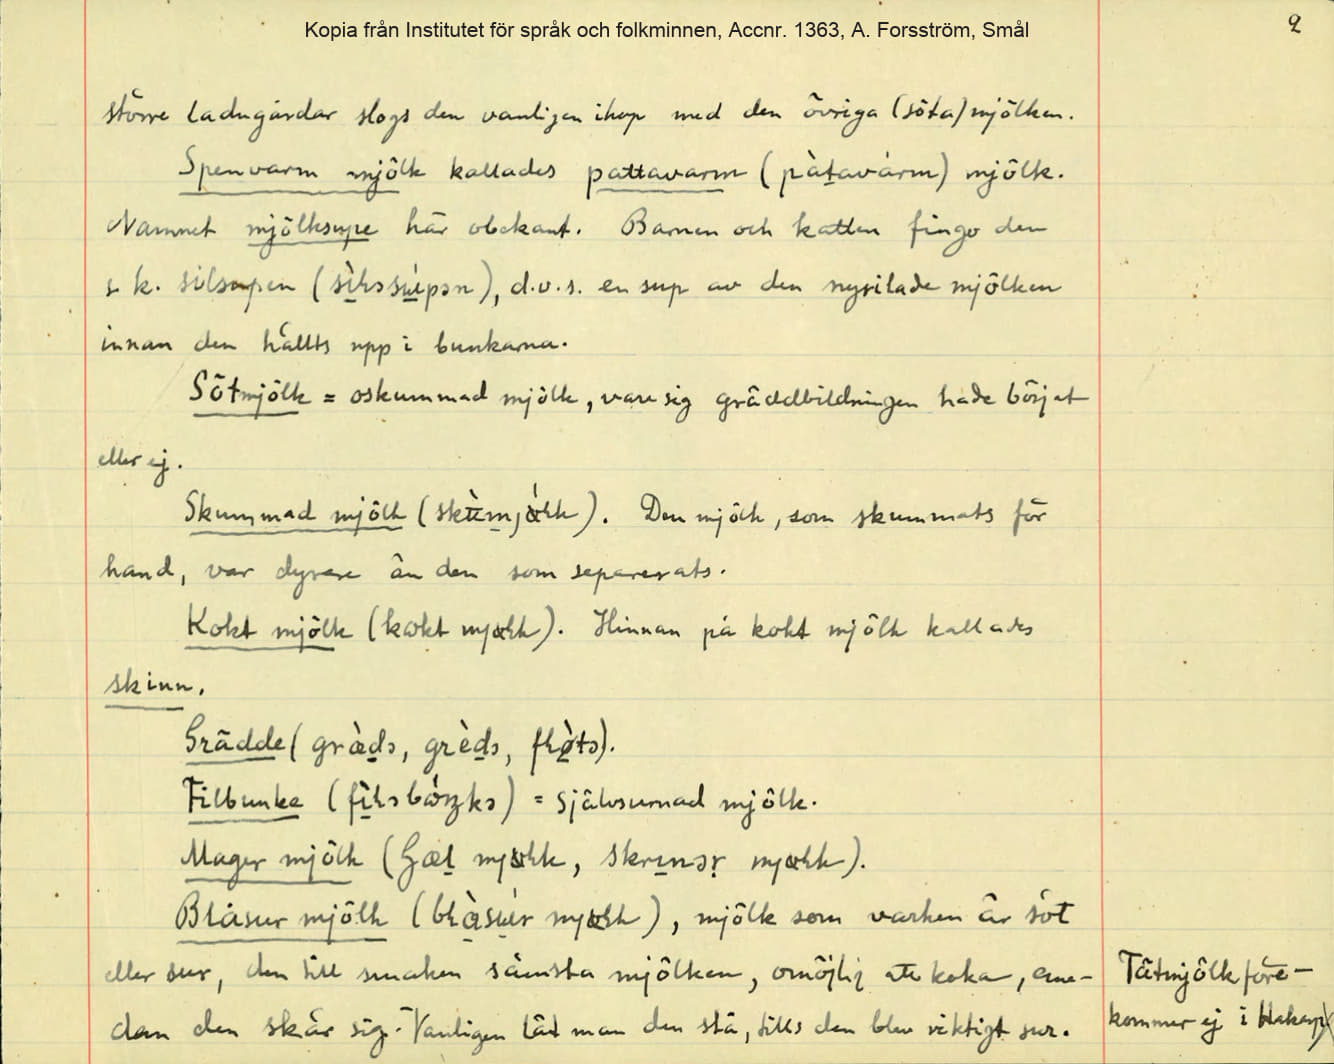 Kopia från Institutet för språk och folkminnen, Accnr. 1363, A. Forsström, Smål
2
större ladugårdar slogs den vanligen ihop med den övriga (söta) mjölken.
Spenvarm mjölk kallades pattavarm (pàṯavárm) mjölk.
Namnet mjölksupe här obekant. Barnen och katten fingo den
s k. silsupen (sìləsúpən), d.v.s. en sup av den nysilade mjölken
innan den hällts upp i bunkarna.
Sötmjölk = oskummad mjölk, vare sig gräddbildningen hade börjat
eller ej.
Skummad mjölk. Den mjölk, som skummats för
hand, var dyrare än den som separerats.
Kokt mjölk. Hinnan på kokt mjölk kallades
skinn.
Grädde (græ̀də, grèdə, fløtə).
Filbunke = självsurnad mjölk.
Mager mjölk
Blåsur mjölk, mjölk som varken är söt
eller sur, den till smaken sämsta mjölken, omöjlig att koka, eme-
dan den skär sig. Vanligen lät man den stå, tills den blev riktigt sur.
Tätmjölk före-
kommer ej i